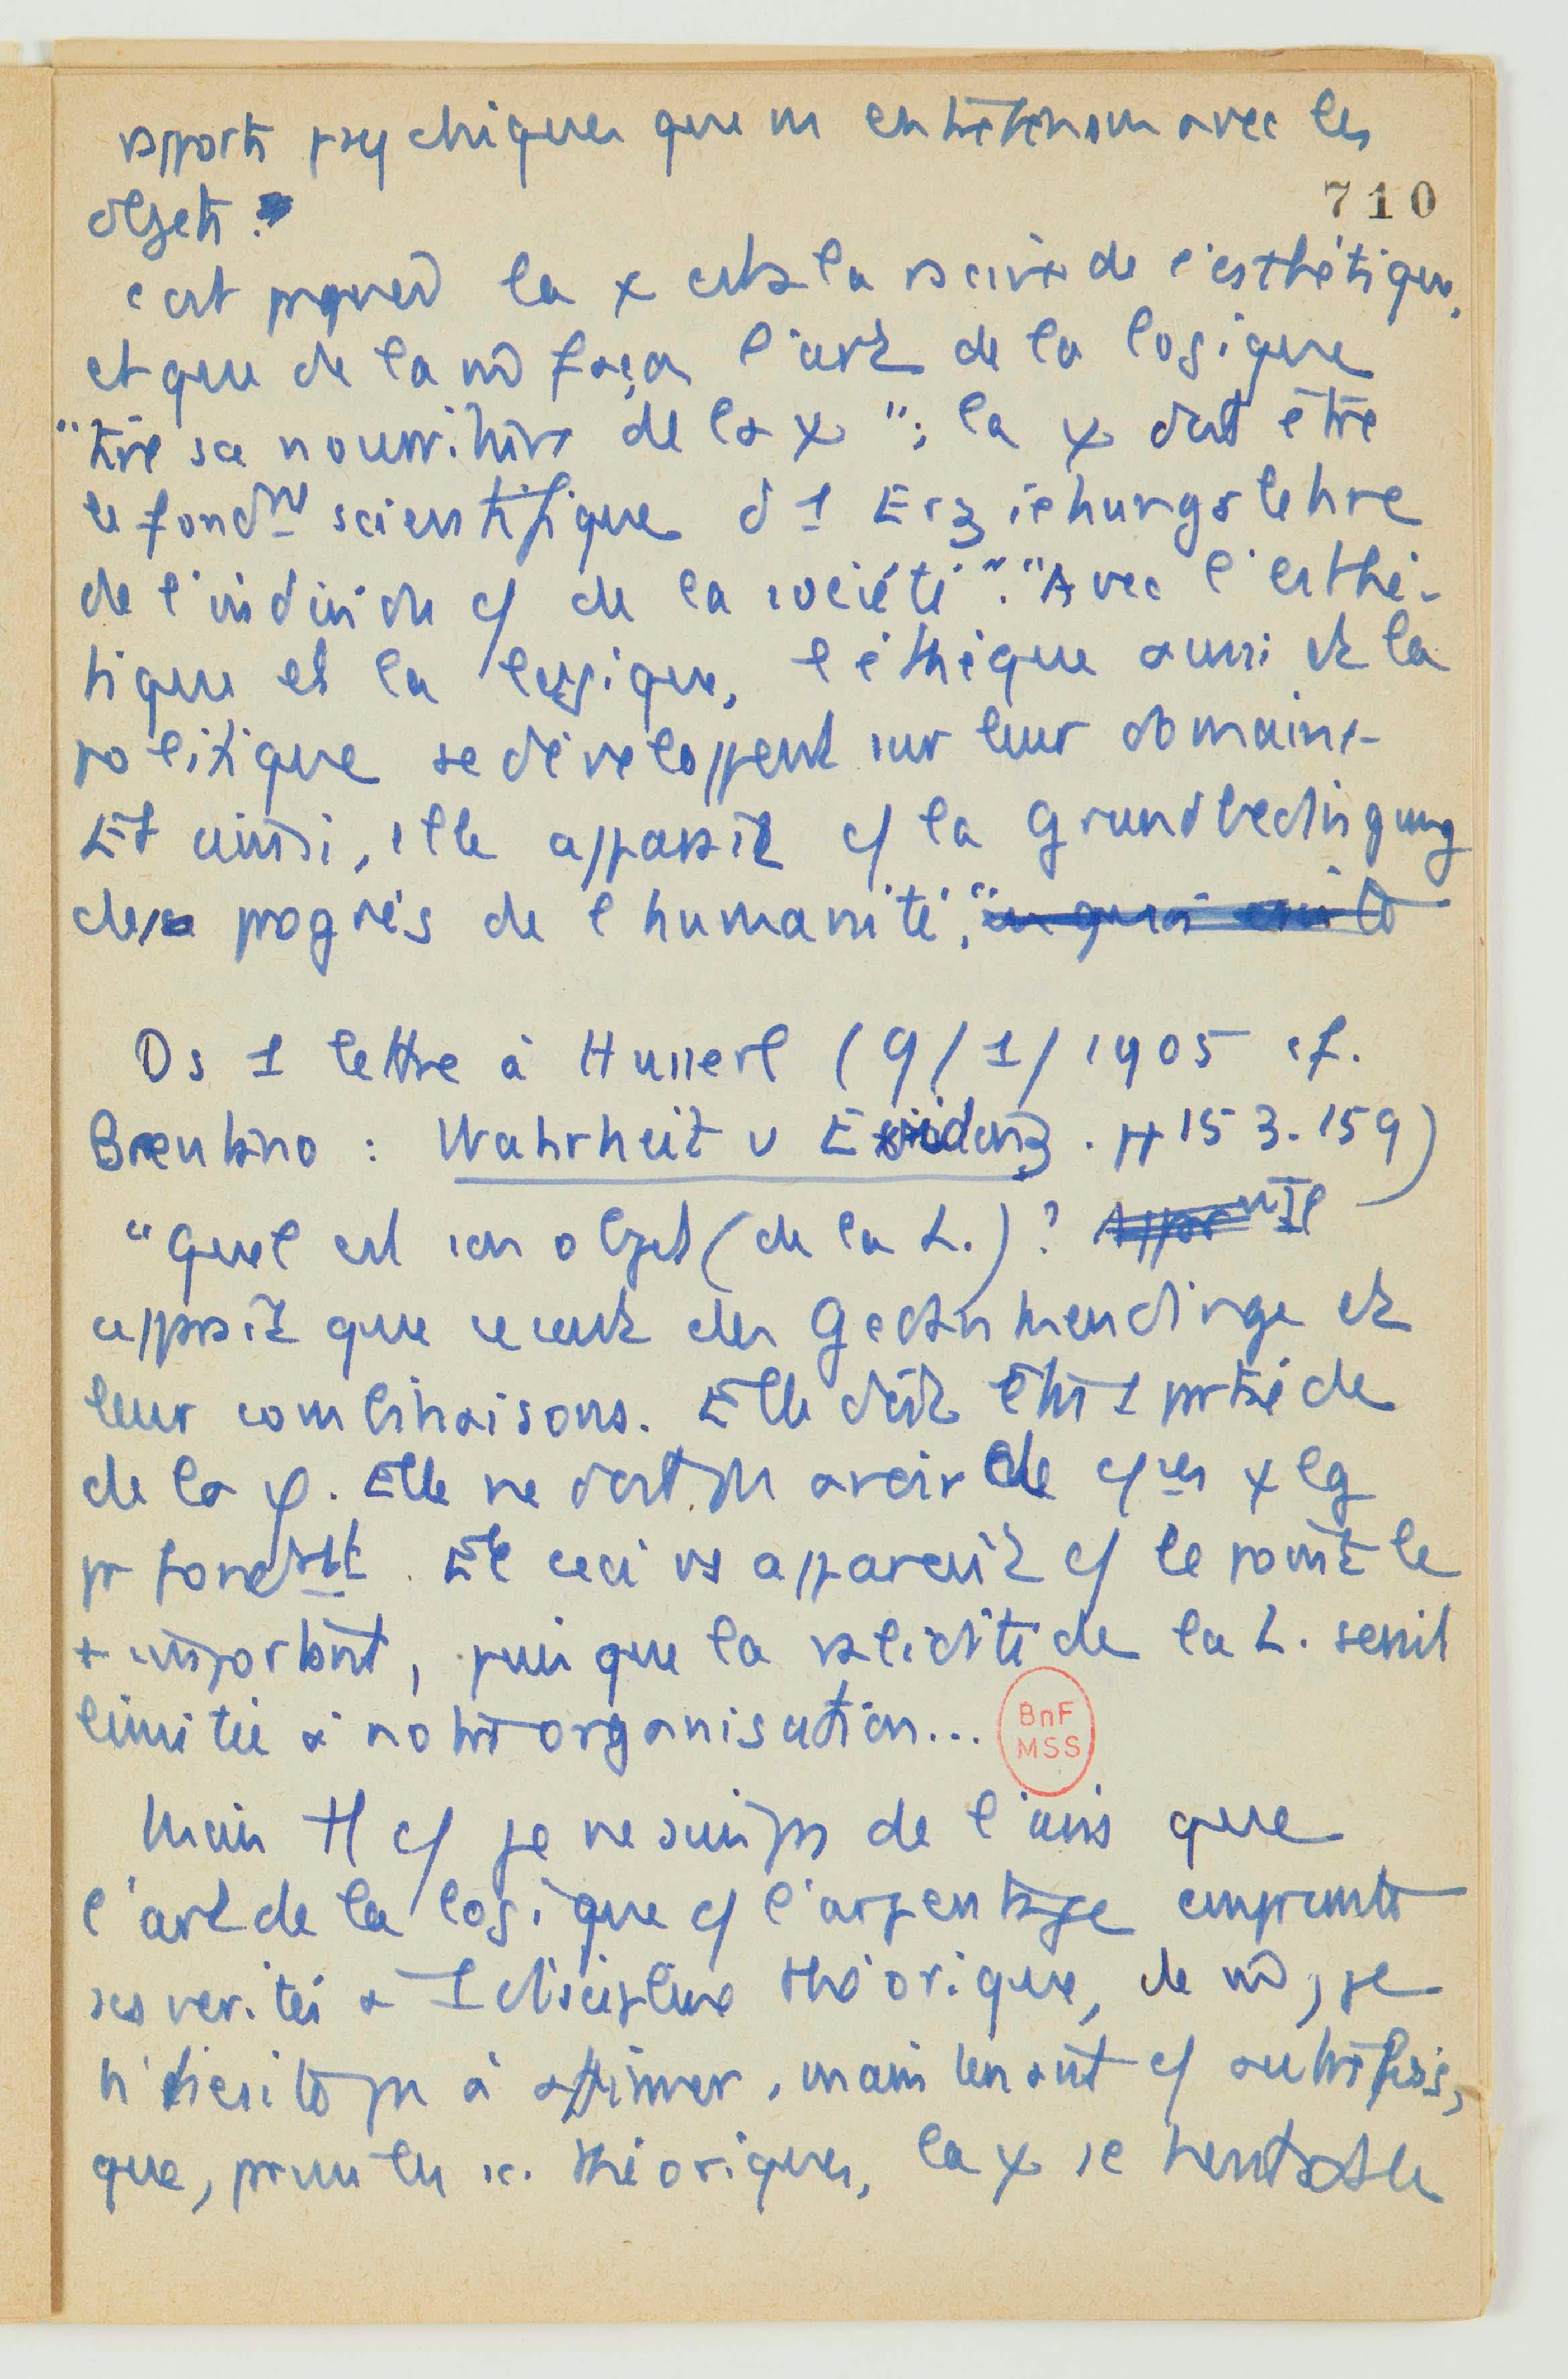 rapports psychiques que ns entretenons avec les
710
objets.
c'est pquoi la χ est à la racine de l'esthétique,
et que de la m̂ façon l'art de la logique
"tire sa nourriture de la χ"; la χ doit être
le fondmt scientifique d'1 Erziehungslehre
de l'individu c/ de la société". "Avec l'esthé-
tique et la logique, l'éthique aussi et la
politique se développent sur leur domaine.
Et ainsi, elle apparaît c/ la Grundbedingung
des progrès de l'humanité,"
Ds 1 lettre à Husserl (9/1/1905 cf.
Brentano : Wahrheit u Evidenz. pp 153-159)
"Quel est son objet (de la L.)? Il
apparaît que ce sont des Gedankendinge et
leur combinaisons. Elle doit être 1 partie de
de la φ. Elle ne doit pas avoir de χ lg
pr fondmt. Et ceci vs apparaît c/ le point le
+ important, puisque la validité de la L. serait
limitée à notre organisation...
BnF
MSS
Mais c/ je ne suis pas de l'avis que
l'art de la logique c/ l'arpentage emprunte
ses vérités à 1 discipline théorique, de m̂, je
n'hésite pas à affirmer, maintenant c/ autrefois,
que, parmi les sc. théoriques, la χ se